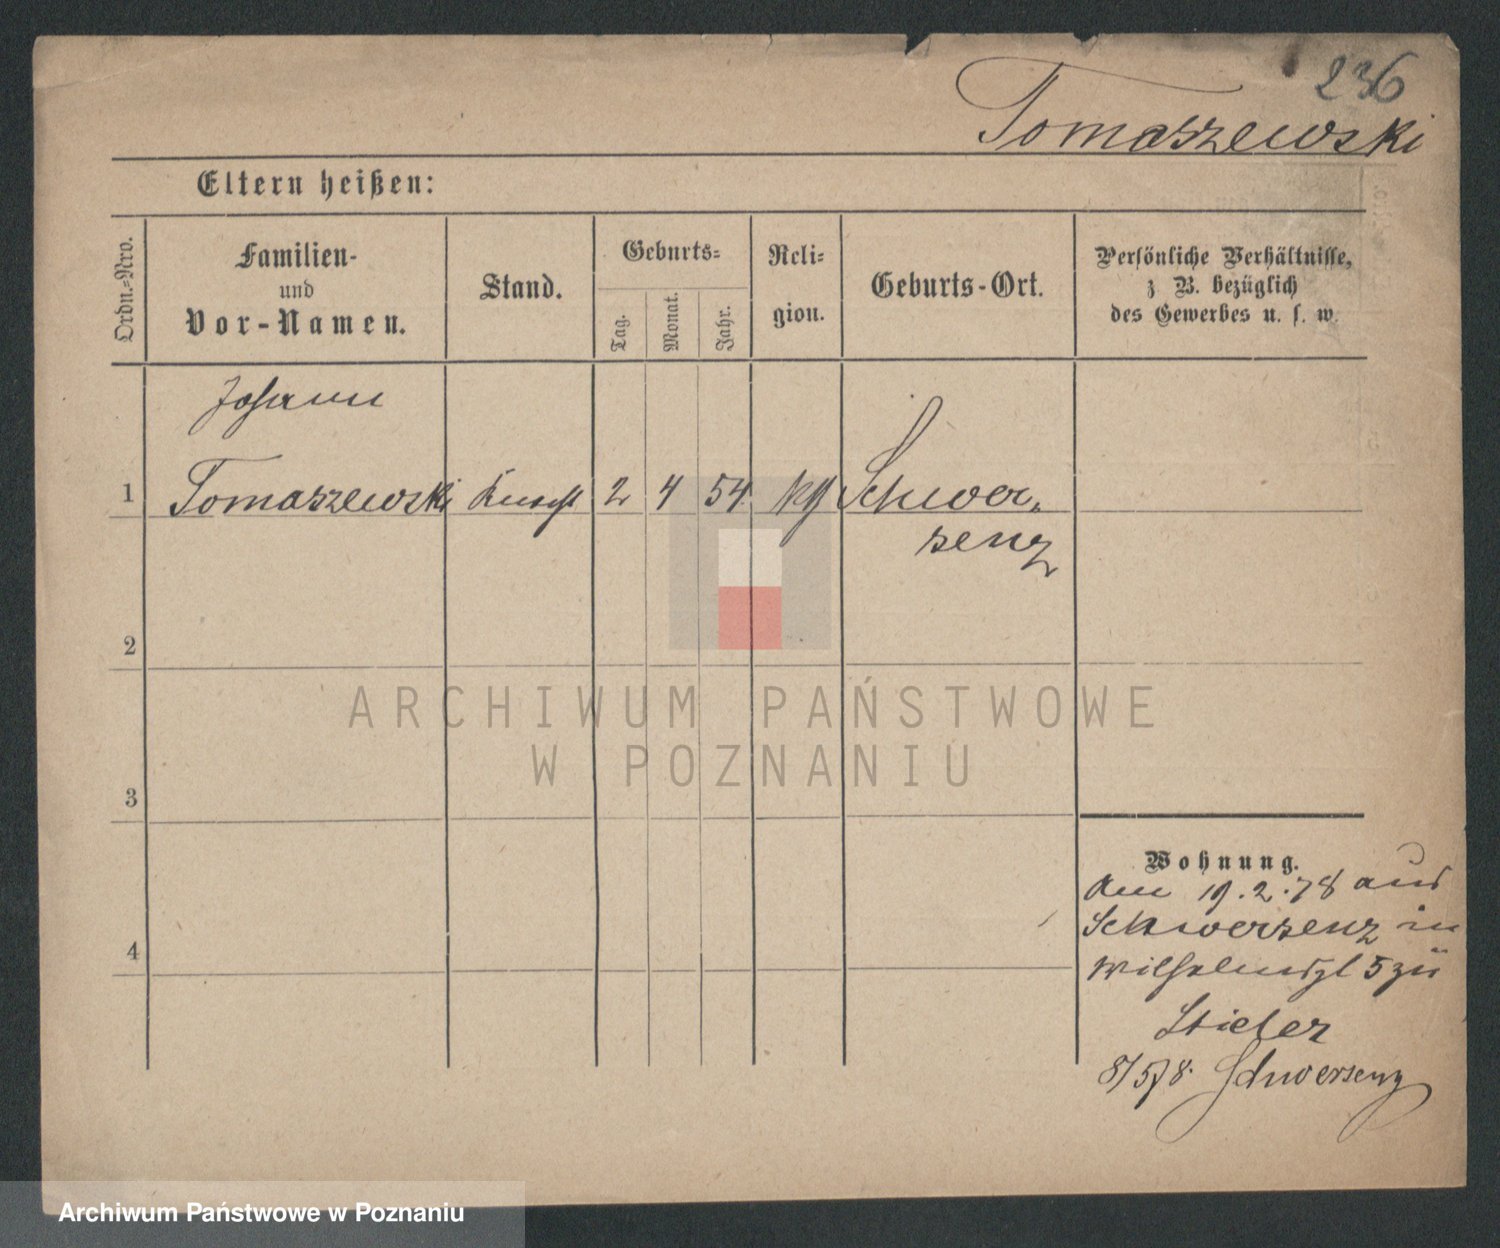 236
Tomaszewski
Eltern heißen:
Ordn.-Nro.
Familien-
und
Vor-Namen.
Stand.
Geburts-
Tag.
Monat.
Jahr.
Reli-
gion.
Geburts-Ort.
Persönliche Verhältnisse,
z. B. bezüglich
des Gewerbes u. s. w.
Johann
1 Tomaszewski Knecht 2 4 54. Schwer-
senz
2
ARCHIWUM PAŃSTWOWE
W POZNANIU
3
Wohnung.
Am 19.2.78 aus
Schwersenz in
4
Wilhelmspl 5 zu
Stieler
8/5 78. Schwersenz
Archiwum Państwowe w Poznaniu